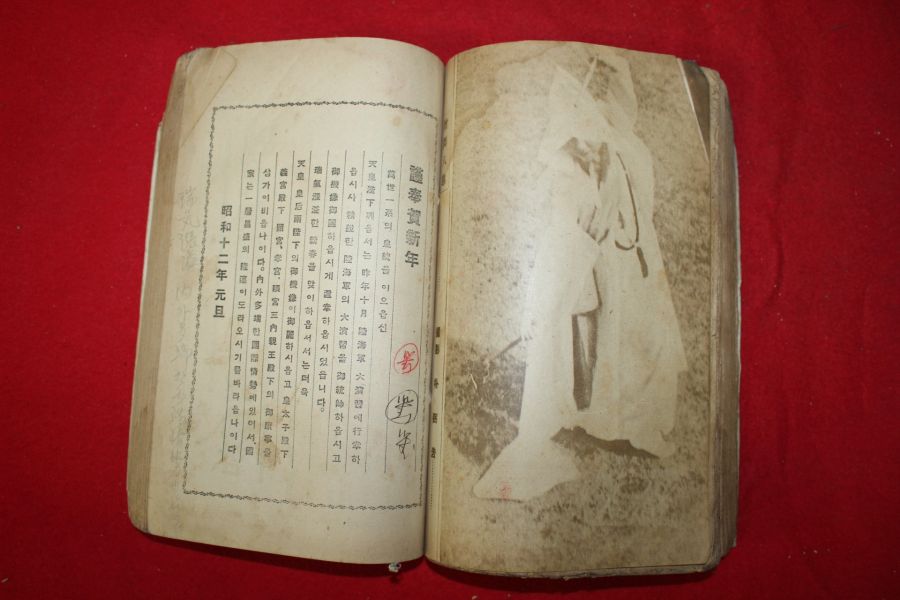 謹奉賀新年
萬世一系의 皇統을 이으옵신
天皇陛下께옵서는 昨年十月 陸海軍 大演習에 行幸하
옵시사 精銳한 陸海軍의 大演習을 御統帥하옵시고
御機嫌御麗하옵시게 還幸하옵시엿습니다。
瑞氣 한 新春을 맞이하옵서서는 더욱
天皇 皇后 兩陛下의 御機嫌이 御麗하시옵고 皇太子殿下
義宮殿下 照宮、孝宮、順宮三內親王殿下의 御康寧을
삼가이비옵나이다。內外多端한 國際情勢에있어서、國
家는 一層昌盛의 隆運이도라오시기를바라옵나이다
昭和十二年 元旦